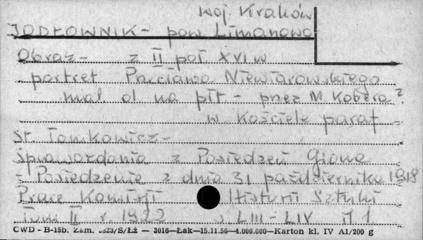 woj Kraków
JODŁOWNIK - pow Limanowa
Obraz - z II poł XVI w
portret Pacława Niewiarowskiego
mal ol na płt - przez M. Kobera?
w kościele paraf
St. Tomkowicz -
Sprawozdania z Posiedzeń Grona
z Posiedzenia z dnia 31 października 1918
Prace Komisji Historii Sztuki
Tom II r 1922 s LIII - LIV
CWD - B-15b. Zam. S/Łż — 3016—Łak—15.11.56—4.000.000—Karton kl. IV A1/200 g